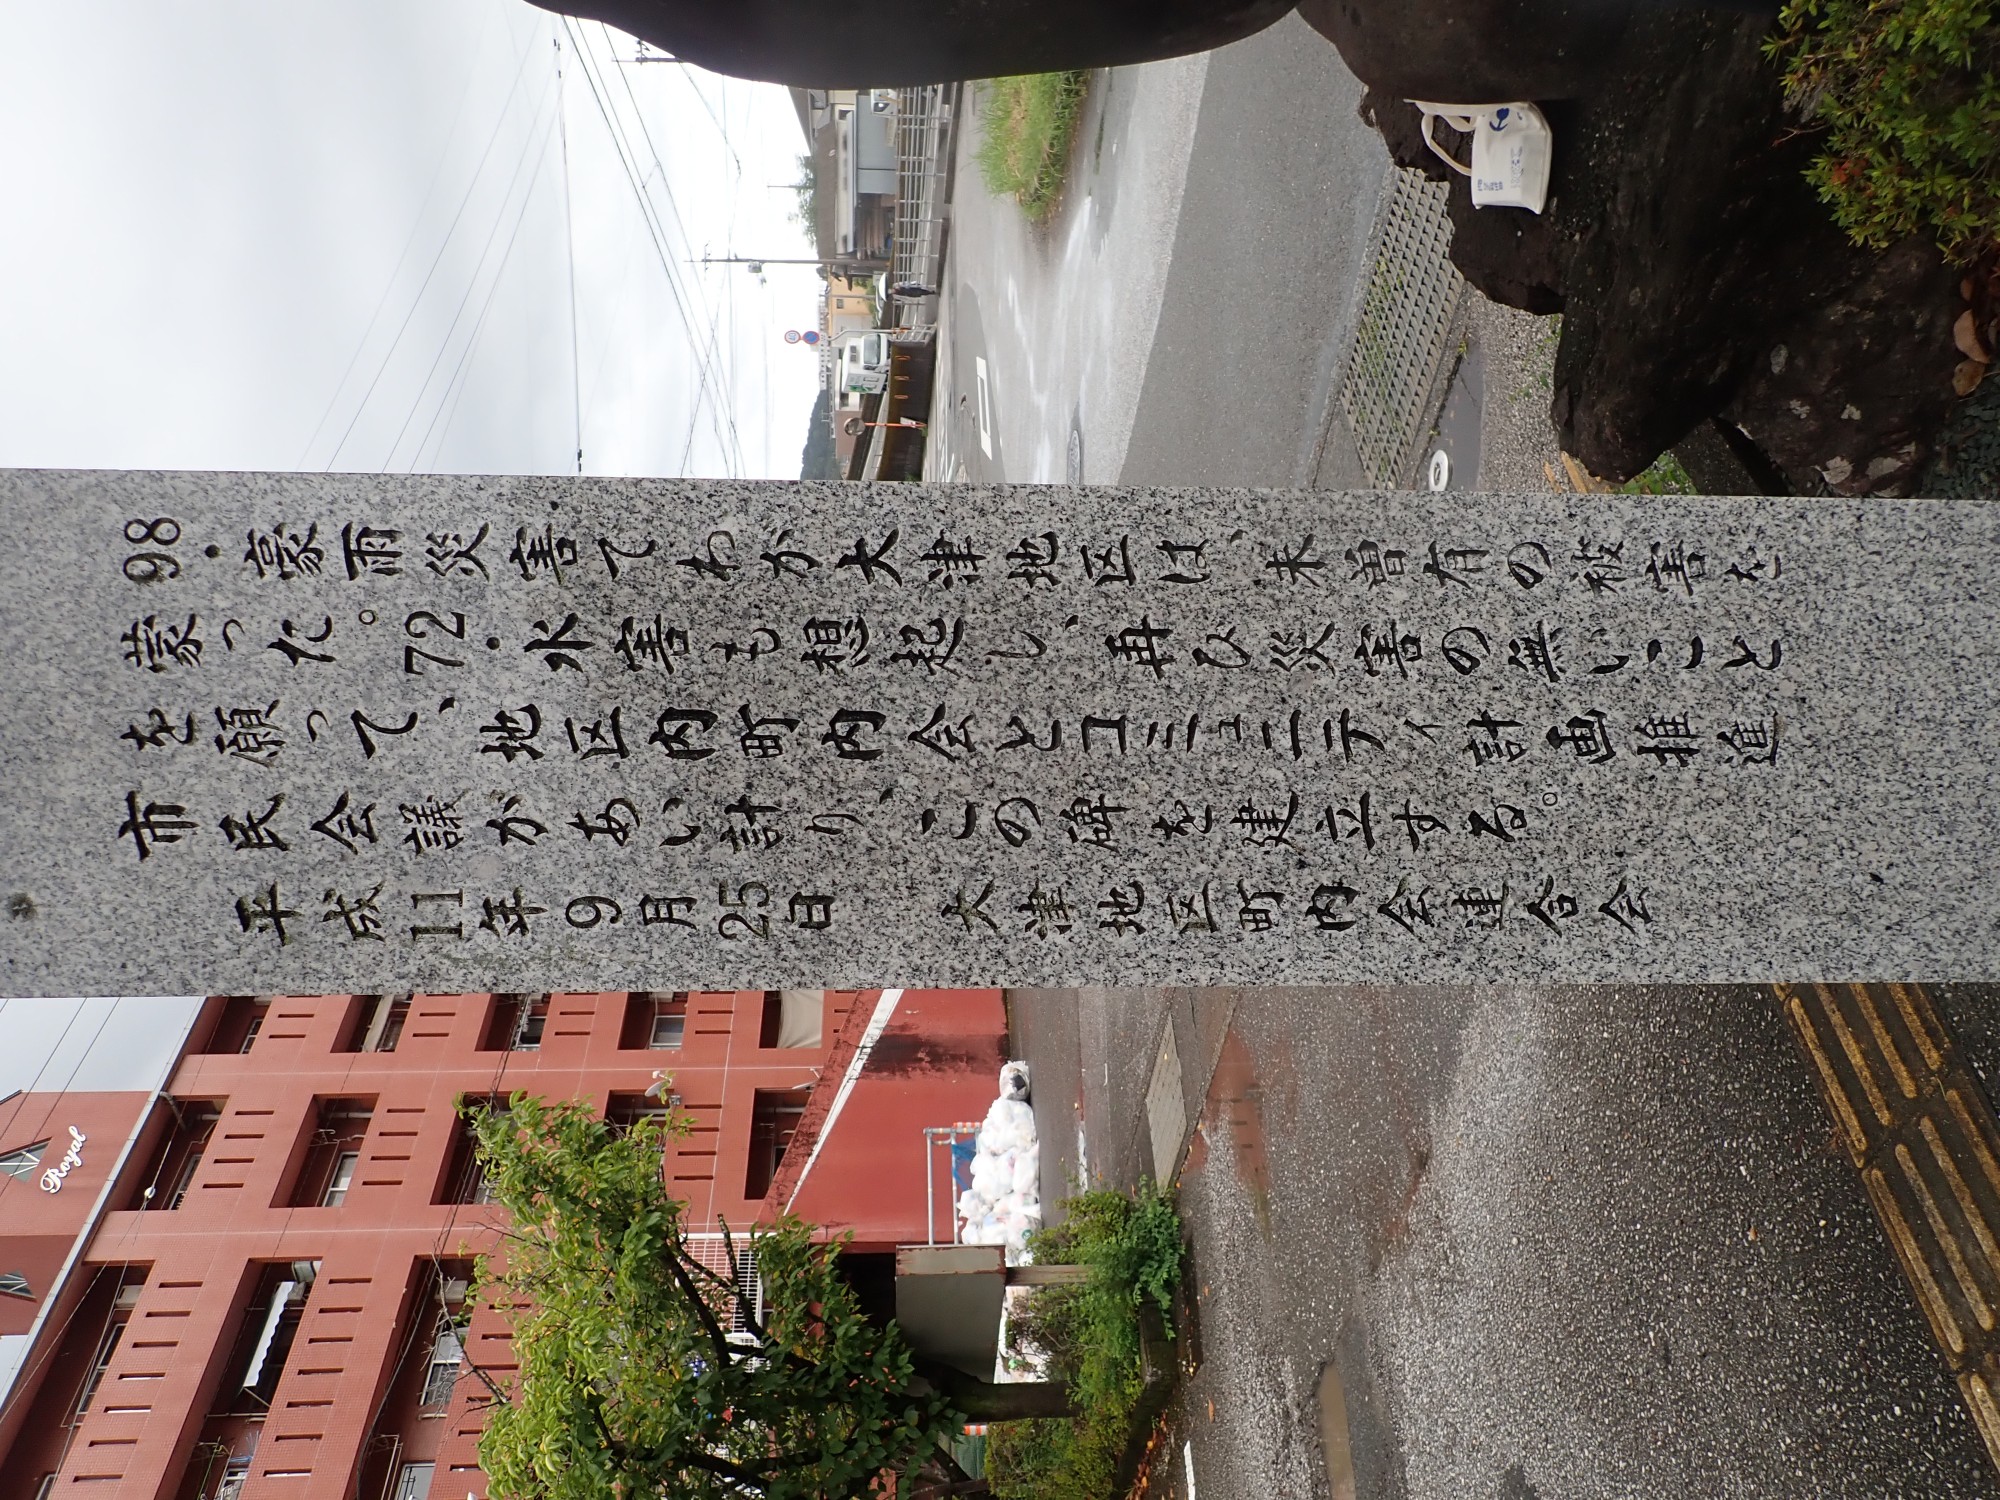 98・豪雨災害でわが大津地区は、未曽有の被害を
蒙った。72・水害も想起し、再び災害の無いこと
を願って、地区内町内会とコミュニティ計画推進
市民会議があい計り、この碑を建立する。
平成11年9月25日　大津地区町内会連合会
Royal